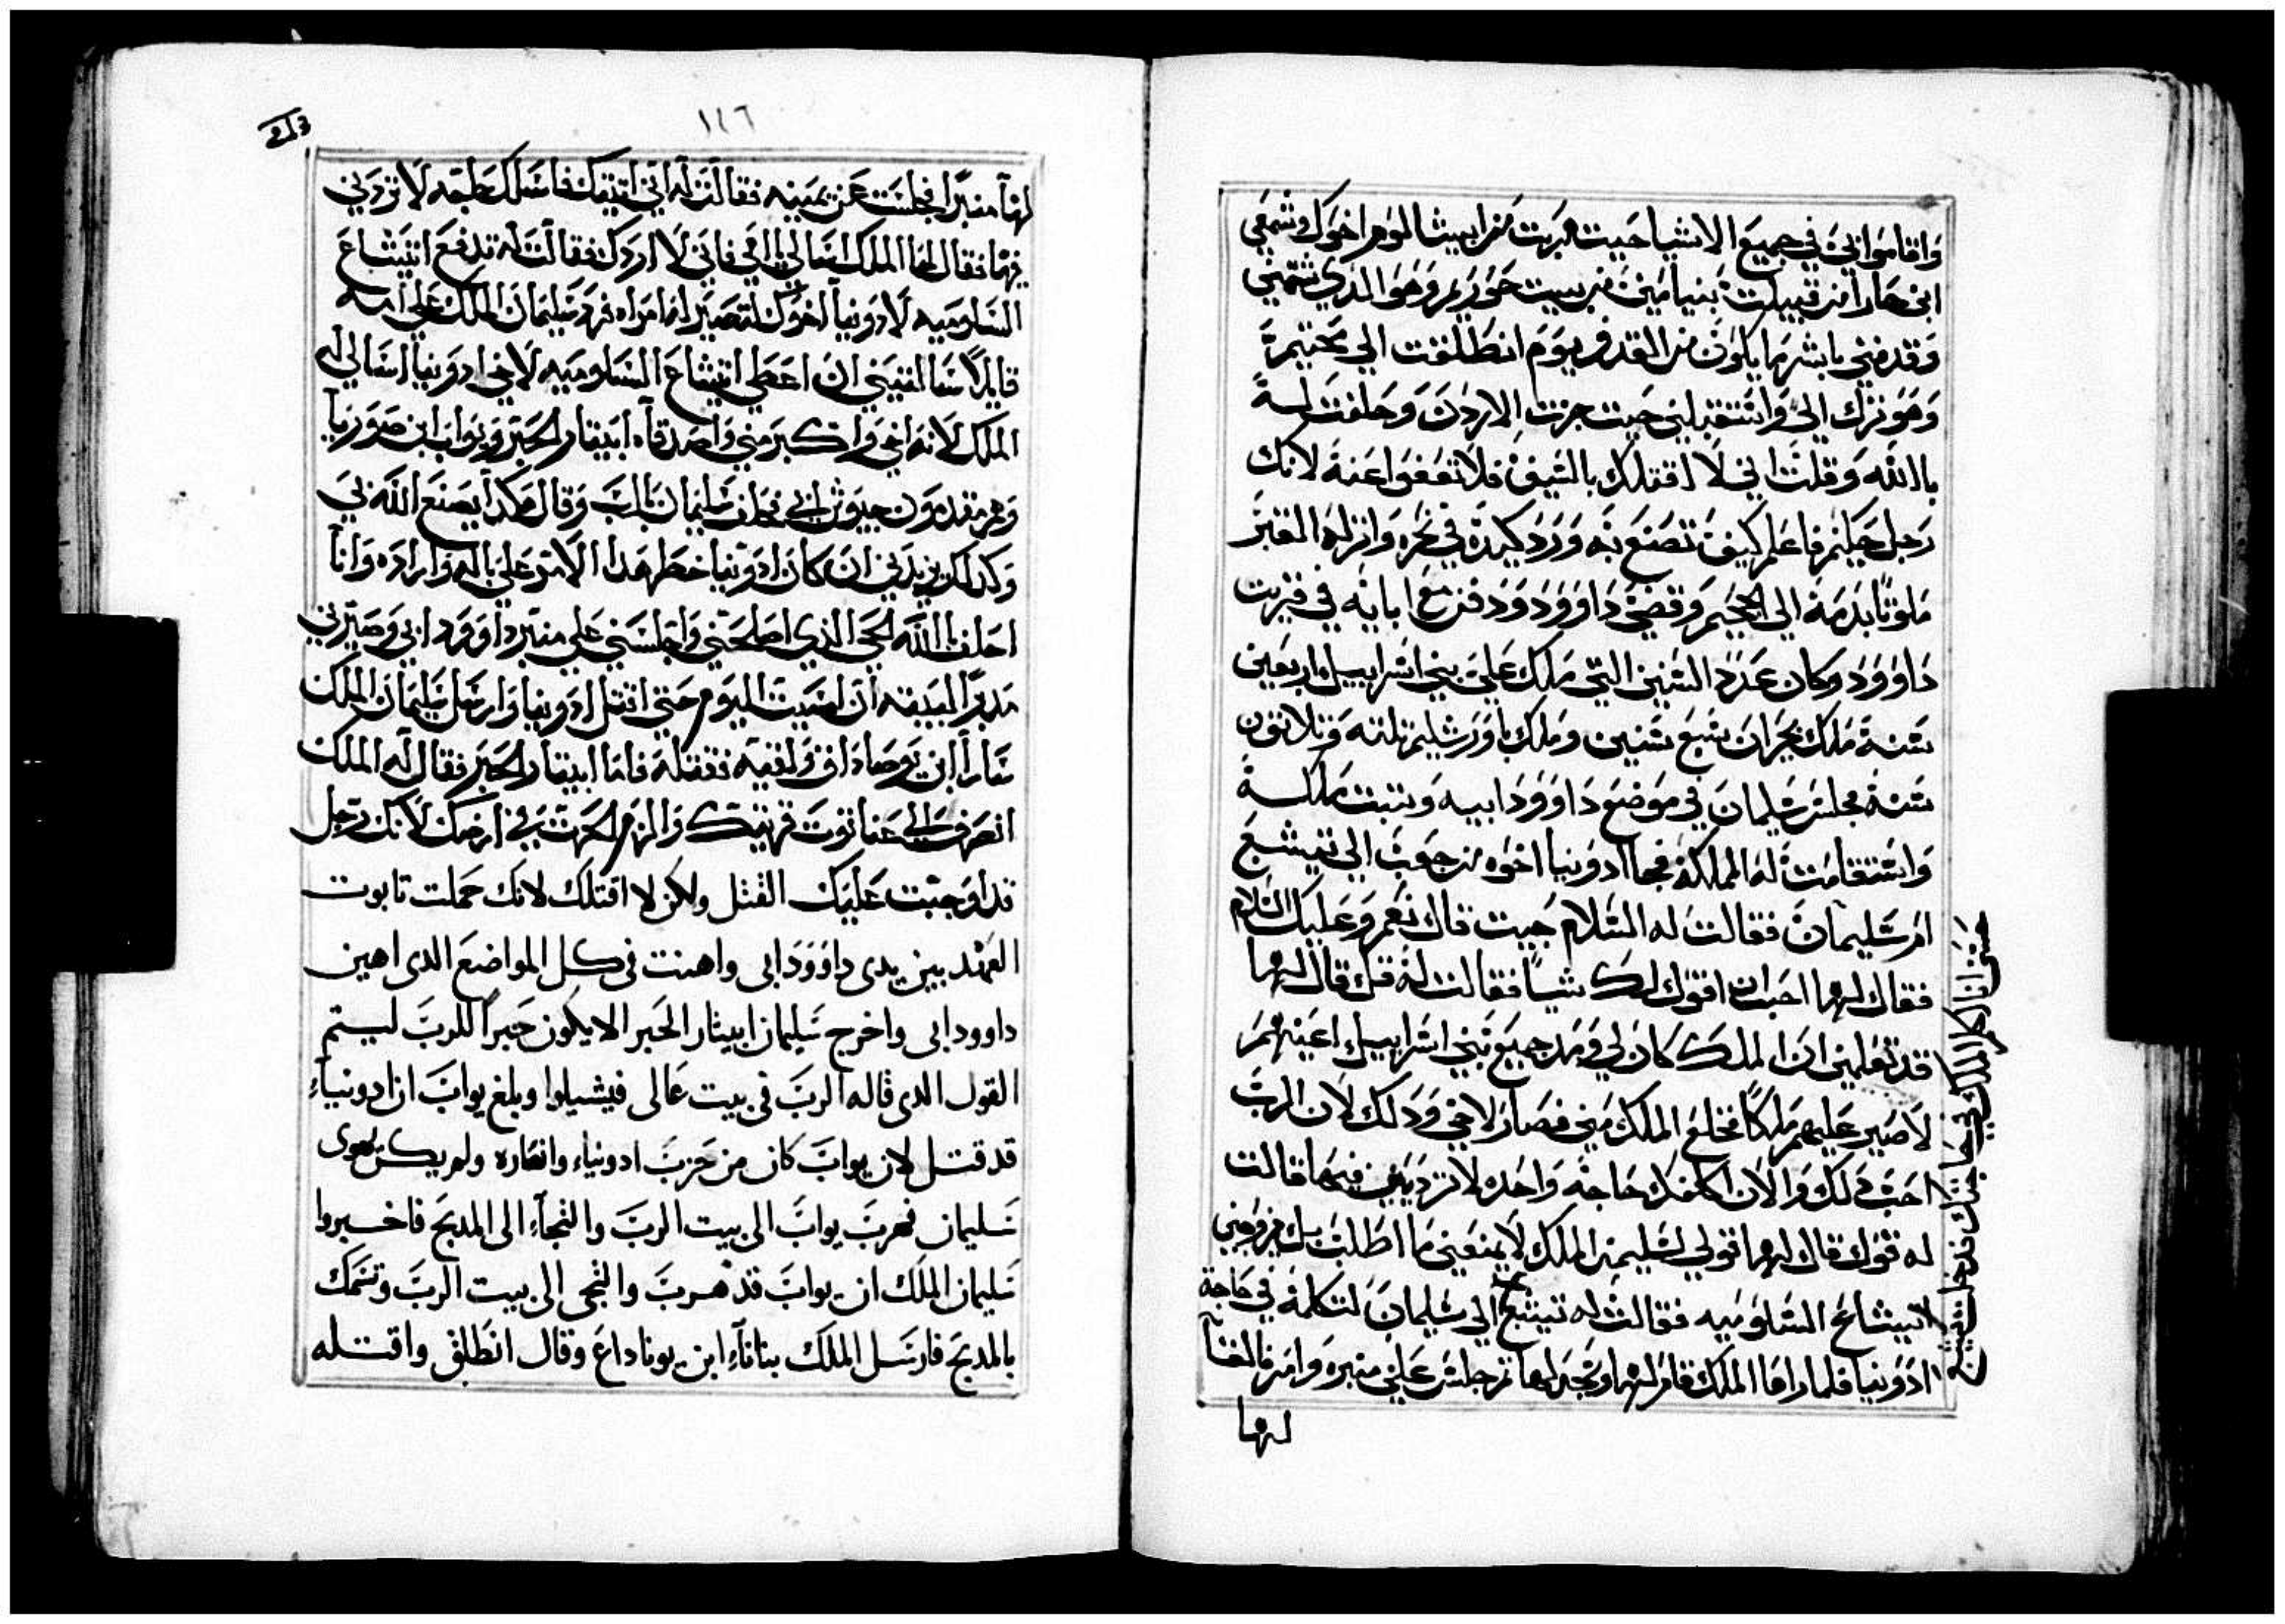 واقاموا ابي في جميع الاشيا حيت هربت من ابيشالوم اخوك وشمعي
ابن حارا من قبيلت بنيامين من بيت حوريم وهو الذي شتمني
وقدفني باشر ما يكون من القدف يوم انطلقت الي محنيم
وهو نزل الي واستقبلني حيت جزت الاردن وحلفت له
بالله وقلت اني لا اقتلك بالسيف فلا تعفوا عنه لانك
رجل حكيم فاعلم كيف تصنع به ورد كيده في نحره وانزله القبر
ملوتا بدمه الي الجحيم وقضي داوود ودفن مع ابايه في قريت
داوود وكان عدد السنين التي ملك علي بني اسراييل اربعين
سنة ملك بحبران سبع سنين وملك باورشليم تلته وتلاتون
سنة فجلس سليمان في موضع داوود ابيه وتبتت مملكته
واستقامت له المملكه فجا ادونيا اخوه بن حعيت الي تيشبع
ام سليمان فقالت له السلام جيت قال نعم وعليك السلام
فقال لها احب ان اقول لك شيا فقالت له قل قال لها
قد تعلمين ان الملك كان لي ومد جميع بني اسراييل اعينهم
لاصير عليهم ملكا فخلع الملك مني فصار لاخي ودلك لان الرب
احب دلك والان اكلفك حاجة واحده لا ترديني فيها قالت
له قول قال لها قولي لسليمن الملك لا يمنعني ما اطلب بل يزوجني
لابيشاع السلوميه فقالت له تيشبع
حتى انا اكلم الملك في حاجتك فدخلت تيشبع
الي سليمان لتكلمه في حاجة
ادونيا فلما راها الملك قام لها وسجد لها تم جلس علي منبره وامر فالقا
لها
١٤٦
لها منبرا فجلست عن يمينه فقالت له اني اتيتك فاسلك حاجه لا تردني
فيها فقال لها الملك اسالي يا امي فاني لا اردك فقالت له تدفع ابيشاع
السلوميه لادونيا اخوك لتصير له امراه فرد سليمان الملك علي امه
قايلا سالتيني ان اعطي ابيشاع السلوميه لاخي ادونيا اسالي له
الملك لانه اخي واكبر مني واصدقاه ابيتار الحبر ويواب ابن صوريا
وهم مقدمون جيوش ابي فحلف سليمان بالرب وقال هكدا يصنع الله بي
وكدلك يزيدني ان كان ادونيا خطر هدا الامر علي باله واراده وانا
احلف بالله الحي الذي اصلحني واجلسني علي منبر داوود ابي وصيرني
مدبرا لبيته ان امسيت اليوم حتي اقتل ادونيا وارسل سليمان الملك
بنايا ابن يوصاداق ولقيه فقتله فاما ابيتار الحبر فقال له الملك
انصرف الي عناتوت قريتك والزم الحرت في ارضك لانك رجل
قد اوجبت عليك القتل ولكن لا اقتلك لانك حملت تابوت
العهد بين يدى داوود ابى واهنت في كل المواضع الدى اهين
داوود ابى واخرج سليمان ابيتار الحبر الا يكون حبرا للرب ليتم
القول الدى قاله الرب في بيت عالى فيشيلوا وبلغ يواب ان ادونياء
قد قتل لان يواب كان من حزب ادونياء وانصاره ولم يكن يهوى
سليمان فهرب يواب الى بيت الرب والتجاء الى المدبح فاخبروا
سليمان الملك ان يواب قد هرب والتجى الى بيت الرب وتمسك
بالمدبح فارسل الملك بناناء ابن يوناداع وقال انطلق واقتله